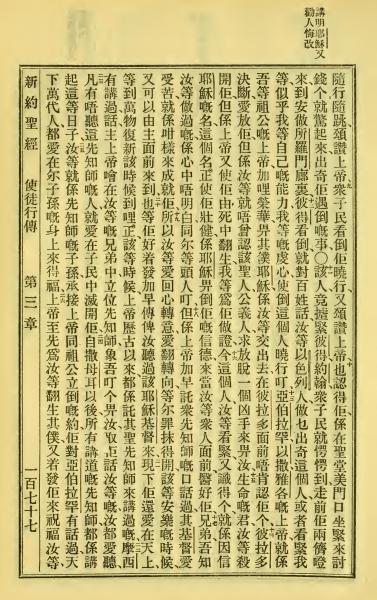 講明耶穌又
勸人悔改
隨行隨跳頌讚上帝衆子民看倒佢曉行又頌讚上帝也認得佢係在聖堂美門口坐緊來討
錢个就驚起來出奇佢遇倒嘅事〇該人竟攎緊彼得約翰衆子民就愕愕到走前佢兩儕嶝
來到安做所羅門廊裏彼得看倒就對百姓話汝等以色列人做乜出奇這個人或者看緊我
等似乎我等自己嘅能力我等嘅虔心使倒這個人曉行叮亞伯拉罕以撒雅各嘅上帝就係
吾等祖公嘅上帝加哩榮華畀其僕耶穌係汝等交出去在彼拉多面前唔肯認佢个彼拉多
決斷愛放佢但係汝等就唔曾認該聖人公義人求放脫一個凶手來畀汝生命嘅君汝等殺
開佢但係上帝又使佢由死中翻生我等爲佢做證今這個人汝等看緊又識得个就係因信
耶穌嘅名這個名正使佢壯健係耶穌畀倒佢嘅信德來當汝等衆人面前醫好佢兄弟吾知
汝等做過嘅係心中唔明白同尔等頭人叮但係上帝加早託衆先知嘅口話過其基督愛
受苦就係咁樣來成就佢所以汝等愛回心轉意愛翻轉向等尔罪抹得開該等安樂嘅時候
又可以由主面前來到也等佢好着發加早傳俾汝聽過該耶穌基督來現下佢還愛在天上
等到萬物復新該時候到哩正該等時候上帝歷古以來都係託其聖先知來講過嘅摩西
有講過話主上帝會在汝等嘅兄弟中立位先知象吾叮个畀汝取佢話汝等嘅汝都愛聽
凡有唔聽這先知嘅人就愛在子民中滅開佢自撒母耳以後所有講道嘅先知都係講
起這等日子汝等就係先知嘅子孫承接上帝同祖公立倒嘅約佢對亞伯拉罕有話過天
下萬代人都愛在尔子孫嘅身上來得福上帝至先爲汝等翻生其僕又着發佢來祝福汝等
新約聖經 使徒行傳 第三章 一百七十七